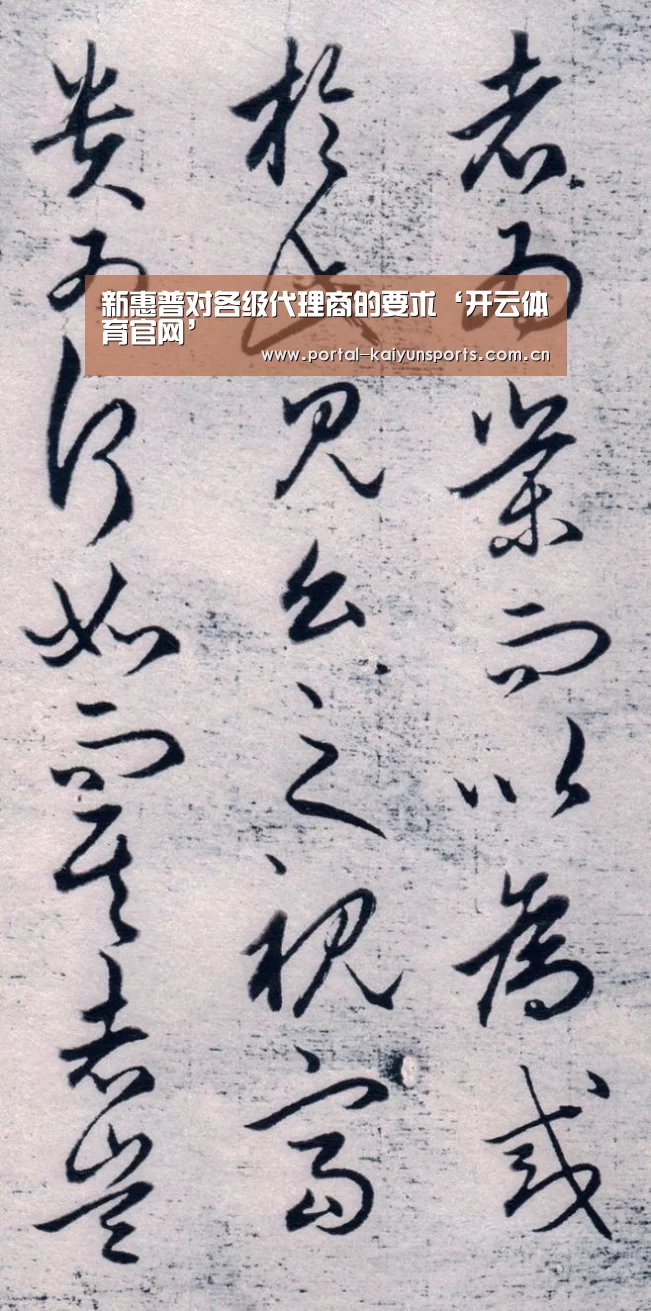 新惠普对各级代理商的要求‘开云体
育官网’
www.portal-kaiyunsports.com.cn
者為榮而以為戒
於此見公之視富
貴為何如而其志豈